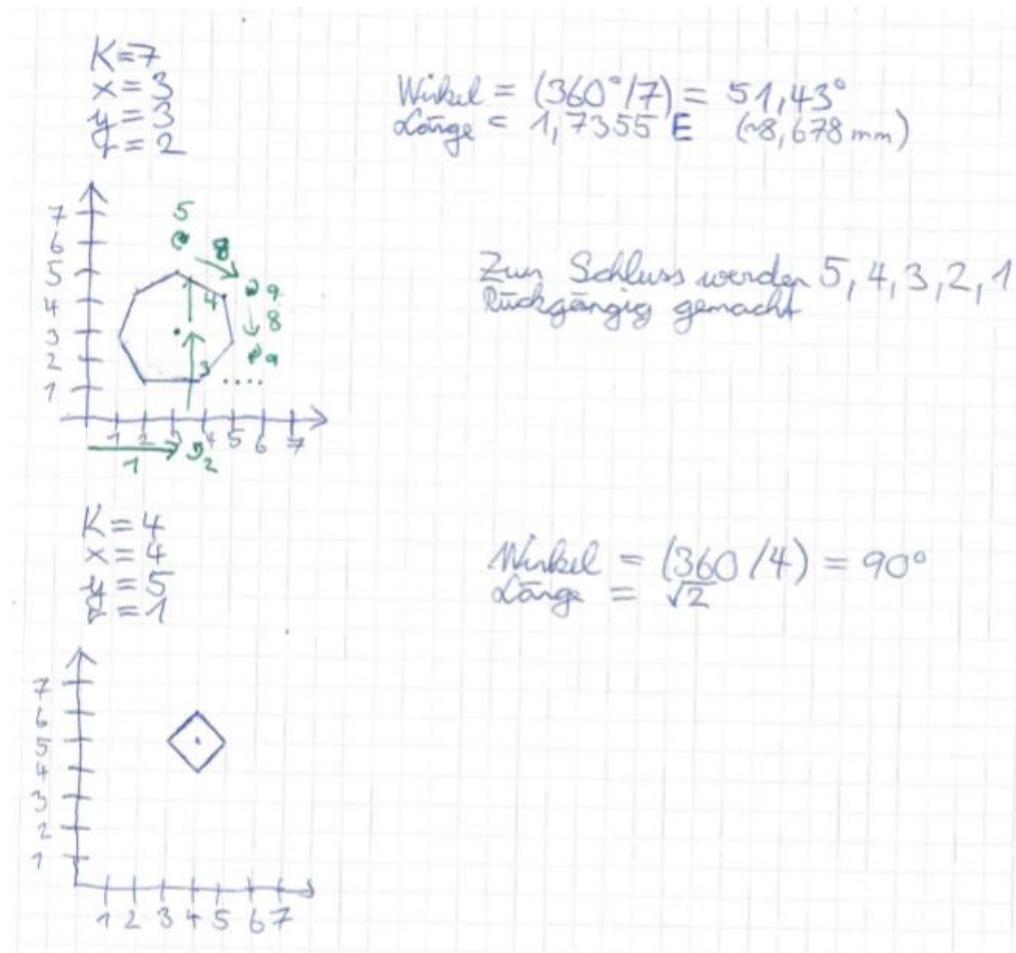 K=7
x = 3
y = 3
r = 2
Winkel = (360°/7) = 51,43°
Länge = 1,7355 E (~8,678 mm)
7
6
5
4
3
2
1
1 2 3 4 5 6 7
5
8
9
4
8
9
3
....
1
2
Zum Schluss werden 5, 4, 3, 2, 1
Rückgängig gemacht
K = 4
x = 4
y = 5
r = 1
Winkel = (360/4) = 90°
Länge = √2
7
6
5
4
3
2
1
1 2 3 4 5 6 7